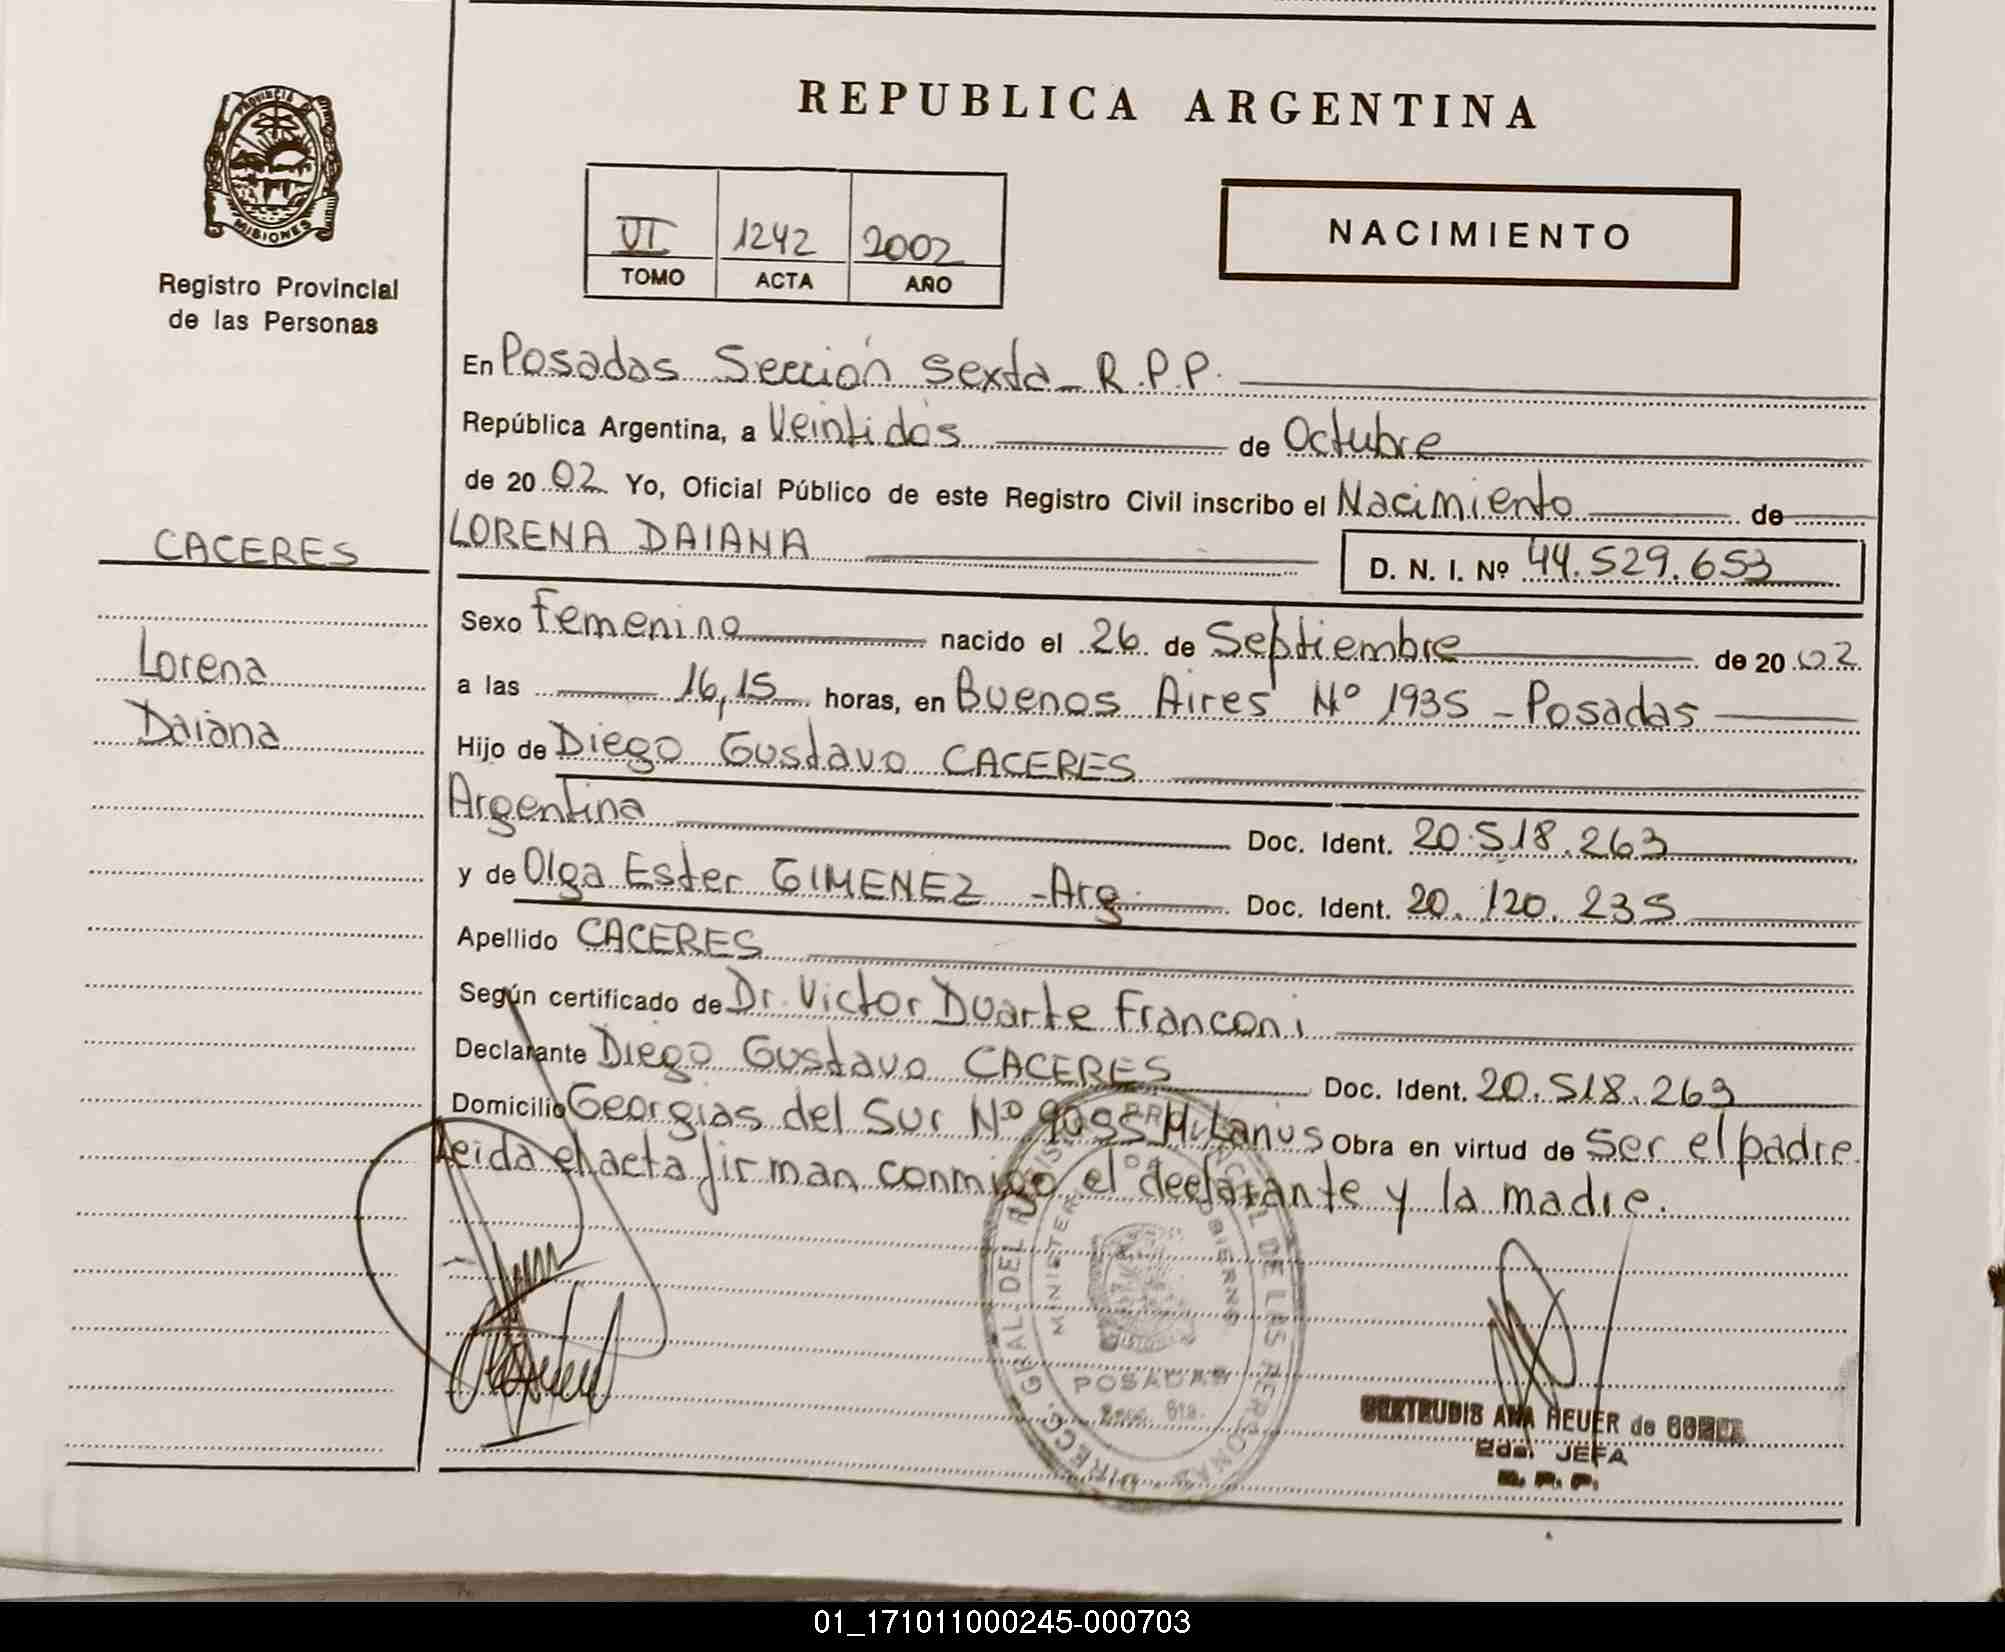 REPUBLICA ARGENTINA
PROVINCIA DE
MISIONES
Registro Provincial
de las Personas
VI 1242 2002
TOMO ACTA AÑO
NACIMIENTO
En Posadas Sección Sexta - R.P.P.
República Argentina, a Veintidós de Octubre
de 2002 Yo, Oficial Público de este Registro Civil inscribo el Nacimiento de
CACERES
LORENA DAIANA D. N. I. Nº 44.529.653
Sexo Femenino nacido el 26 de Septiembre de 2002
Lorena
a las 16,15 horas, en Buenos Aires Nº 1935 - Posadas
Daiana
Hijo de Diego Gustavo CACERES
Argentina Doc. Ident. 20.518.263
y de Olga Ester GIMENEZ - Arg. Doc. Ident. 20.120.235
Apellido CACERES
Según certificado de Dr. Victor Duarte Franconi
Declarante Diego Gustavo CACERES Doc. Ident. 20.518.263
Domicilio Georgias del Sur Nº Lanús Obra en virtud de ser el padre
Leida el acta firman conmigo el declarante y la madre.
DIRECC. GRAL DEL DE LAS PERSONAS
MINISTERIO GOBIERNO
POSADAS
Secc. 6ta.
GERTRUDIS ANA HEUER de
2da. JEFA
R. P. P.
01_171011000245-000703